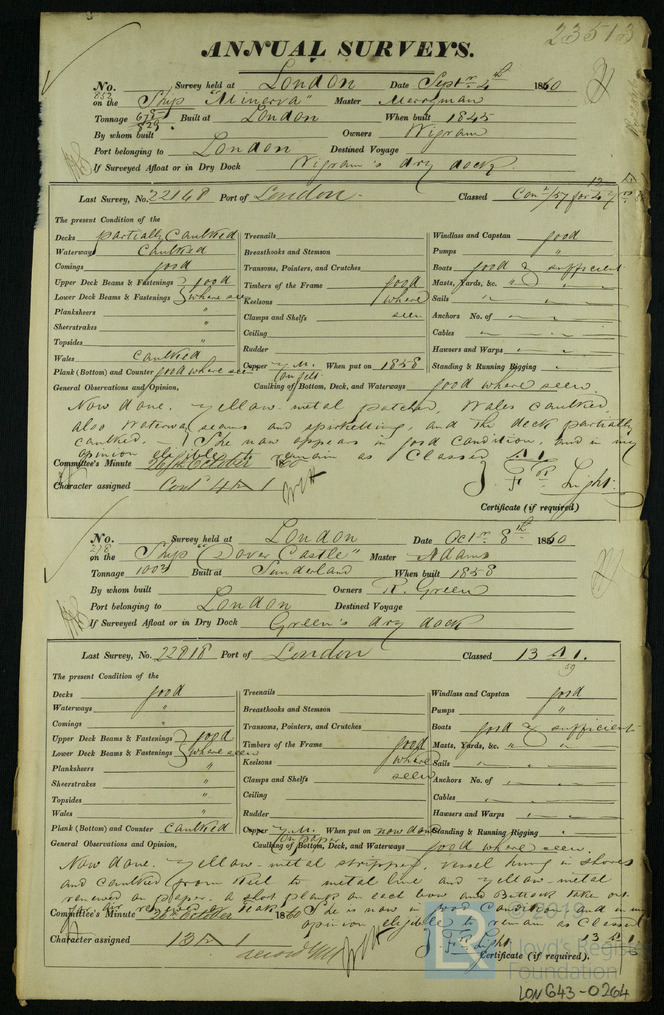 23513
ANNUAL SURVEYS.
No. 853 Survey held at London Date Septr 4th 1860
on the Ship "Minerva" Master Merryman
Tonnage 678 829 Built at London When built 1845
By whom built Owners Wigram
Port belonging to London Destined Voyage
If Surveyed Afloat or in Dry Dock Wigram's dry dock
Last Survey, No. 22148 Port of London Classed Con
The present Condition of the
Decks partially Caulked Treenails Windlass and Capstan good
Waterways Caulked Breasthooks and Stemson Pumps "
Comings good Transoms, Pointers, and Crutches Boats good & sufficient
Upper Deck Beams & Fastenings good Timbers of the Frame good Masts, Yards, &c. " "
Lower Deck Beams & Fastenings where seen Keelsons where Sails " "
Planksheers " Clamps and Shelfs seen Anchors No. of " "
Sheerstrakes " Ceiling Cables " "
Topsides " Rudder Hawsers and Warps " "
Wales Caulked Copper y.M. When put on 1858 Standing & Running Rigging " "
Plank (Bottom) and Counter good where seen on felt
General Observations and Opinion, Caulking of Bottom, Deck, and Waterways good where seen
Now done. Yellow metal patched, Wales caulked,
also Waterway seams and spirketting, and the deck partially
caulked. — She now appears in good condition, and in my
opinion eligible to remain as Classed A 1
Committee's Minute 26th October 1860 J. F. Light
Character assigned Cont 4 A 1
Certificate (if required)
No. 278 Survey held at London Date Octr 8th 1860
on the Ship "Dover Castle" Master Adams
Tonnage 1003 Built at Sunderland When built 1858
By whom built Owners R. Green
Port belonging to London Destined Voyage
If Surveyed Afloat or in Dry Dock Green's dry dock
Last Survey, No. 22818 Port of London Classed 13 A 1.
59
The present Condition of the
Decks good Treenails Windlass and Capstan good
Waterways " Breasthooks and Stemson Pumps "
Comings " Transoms, Pointers, and Crutches Boats good & sufficient
Upper Deck Beams & Fastenings good Timbers of the Frame good Masts, Yards, &c. " "
Lower Deck Beams & Fastenings where seen Keelsons where Sails " "
Planksheers " Clamps and Shelfs seen Anchors No. of " "
Sheerstrakes " Ceiling Cables " "
Topsides " Rudder Hawsers and Warps " "
Wales " Copper y.M. When put on now done Standing & Running Rigging " "
Plank (Bottom) and Counter Caulked on paper
General Observations and Opinion, Caulking of Bottom, Deck, and Waterways good where seen
Now done. Yellow-metal stripped, vessel hung in shores
and caulked from Keel to metal line and yellow-metal
renewed on paper. a short plank on each bow and Buttock taken out
for air She is now in good Condition and in my
opinion eligible to remain as Classed
Committee's Minute October 1860 13 A 1
Character assigned 13 A 1 J. F. Light
Certificate (if required).
LR © 2019
Lloyd's Register
Foundation
LON 643-0264